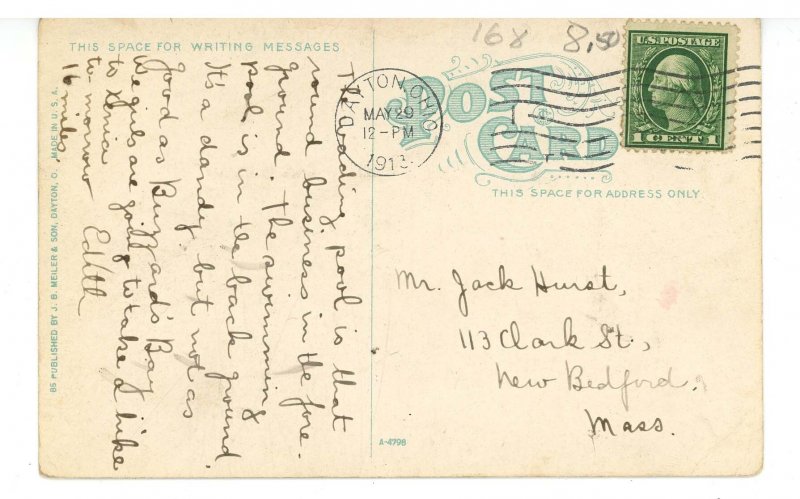 THIS SPACE FOR WRITING MESSAGES
The wading pool is that
round business in the fore-
ground. The swimming
pool is in the back ground.
It's a dandy, but not as
good as Buzzard's Bay
We girls are going to take a hike
to Xenia
to-morrow
16 miles
Edith
85 PUBLISHED BY J. B. MEILER & SON, DAYTON, O. MADE IN U.S.A.
168
8,50
DAYTON, OHIO
MAY 29
12-PM
1913
POST
CARD
U.S. POSTAGE
1 CENT 1
THIS SPACE FOR ADDRESS ONLY.
Mr. Jack Hurst,
113 Clark St.,
New Bedford,
Mass.
A-4798